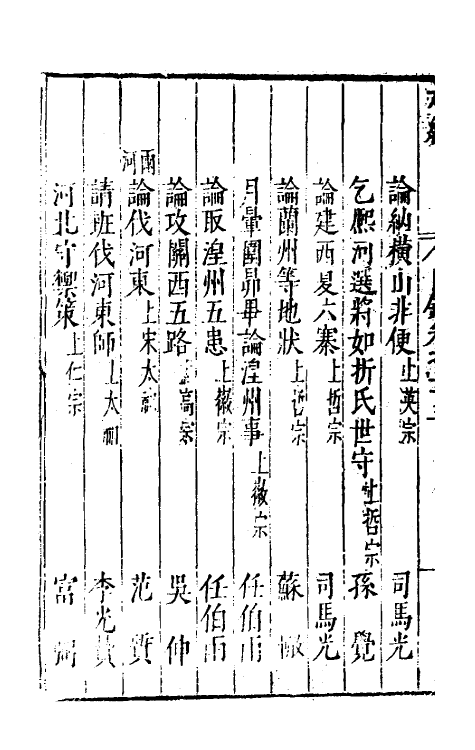 論納橫山非便上英宗 司馬光
乞熈河選將如折氏世守上哲宗 孫覺
論建西夏六寨上哲宗 司馬光
論蘭州等地狀上哲宗 蘇轍
月暈圍昴畢論湟州事上徽宗 任伯雨
論取湟州五患上徽宗 任伯雨
論攻關西五路上高宗 吳伸
兩河
論伐河東上宋太祖 范質
請班伐河東師上太祖 李光贊
河北守禦策上仁宗 富弼